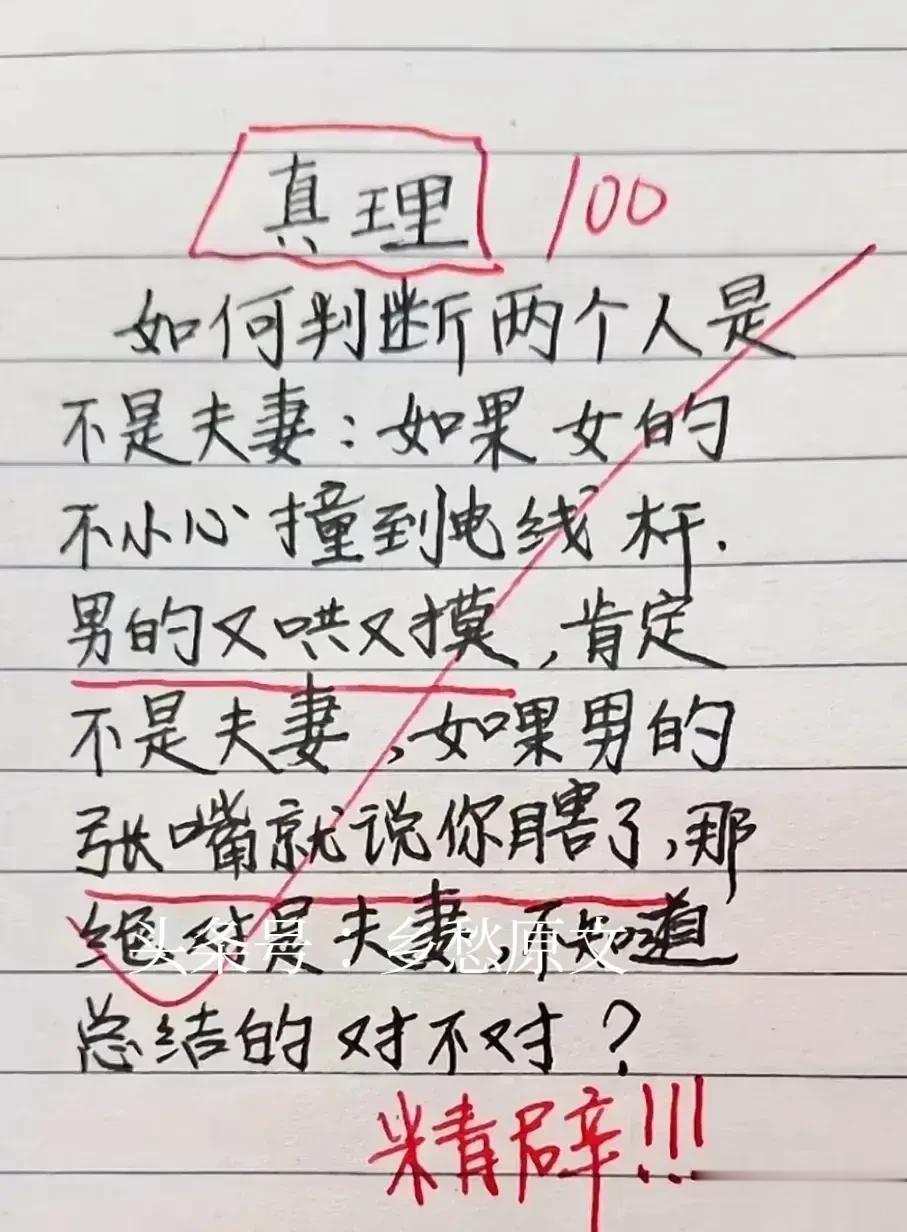 真理 100
如何判断两个人是
不是夫妻：如果女的
不小心撞到电线杆.
男的又哄又摸，肯定
不是夫妻，如果男的
张嘴就说你瞎了，那
绝结是夫妻，不知道
头条号：乡愁原文
总结的对不对？
精辟!!!